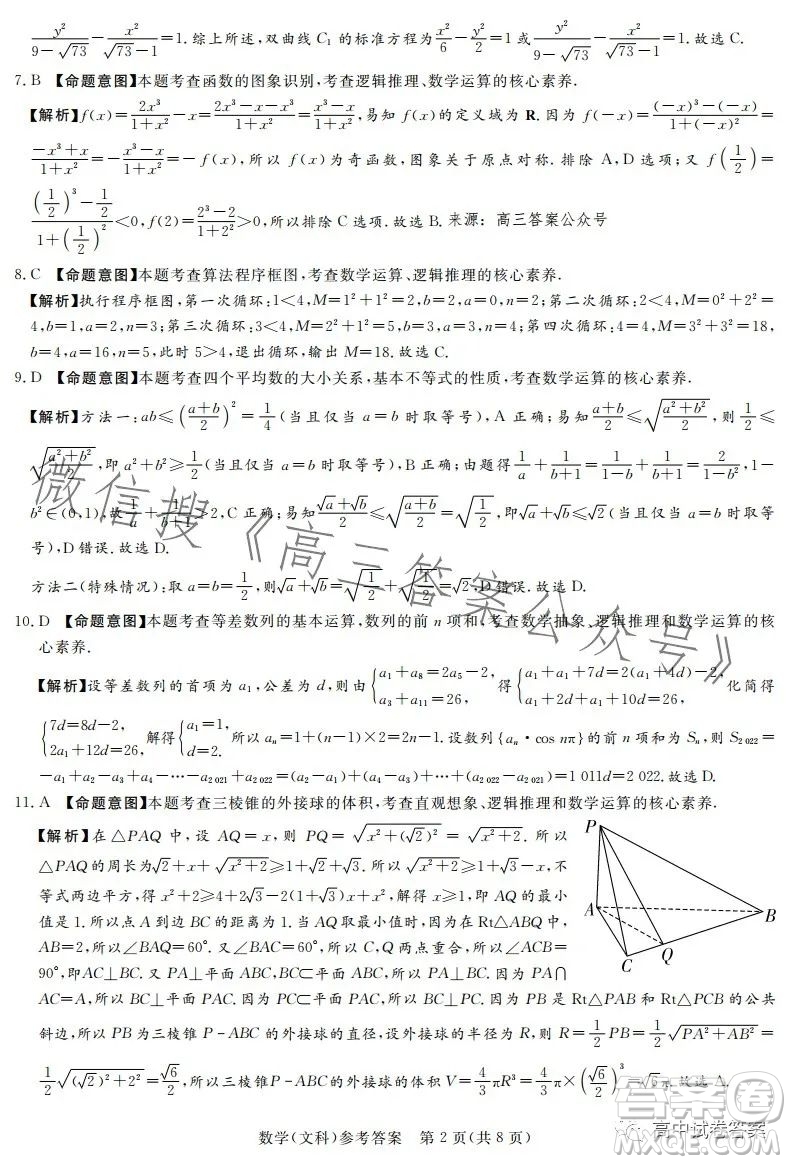 y²/(9-√73) - x²/(√73-1) = 1. 综上所述,双曲线 C₁ 的标准方程为 x²/6 - y²/2 = 1 或 y²/(9-√73) - x²/(√73-1) = 1. 故选 C.
7. B 【命题意图】本题考查函数的图象识别,考查逻辑推理、数学运算的核心素养.
【解析】f(x)=2x³/(1+x²)-x=(2x³-x-x³)/(1+x²)=(x³-x)/(1+x²),易知 f(x)的定义域为 R. 因为 f(-x)=((-x)³-(-x))/(1+(-x)²)=
(-x³+x)/(1+x²)=-(x³-x)/(1+x²)=-f(x),所以 f(x)为奇函数,图象关于原点对称. 排除 A,D 选项;又 f(1/2)=
((1/2)³-1/2)/(1+(1/2)²)<0,f(2)=(2³-2)/(1+2²)>0,所以排除 C 选项. 故选 B. 来源:高三答案公众号
8. C 【命题意图】本题考查算法程序框图,考查数学运算、逻辑推理的核心素养.
【解析】执行程序框图,第一次循环:1<4,M=1²+1²=2,b=2,a=0,n=2;第二次循环:2<4,M=0²+2²=
4,b=1,a=2,n=3;第三次循环:3<4,M=2²+1²=5,b=3,a=3,n=4;第四次循环:4=4,M=3²+3²=18,
b=4,a=16,n=5,此时 5>4,退出循环,输出 M=18. 故选 C.
9. D 【命题意图】本题考查四个平均数的大小关系,基本不等式的性质,考查数学运算的核心素养.
【解析】方法一:ab≤((a+b)/2)²=1/4(当且仅当 a=b 时取等号),A 正确;易知(a+b)/2≤√((a²+b²)/2),则 1/2≤
√((a²+b²)/2),即 a²+b²≥1/2(当且仅当 a=b 时取等号),B 正确;由题得 1/a+1/(b+1)=1/(1-b)+1/(b+1)=2/(1-b²),1-
b²∈(0,1),故 1/a+1/(b+1)>2,C 正确;易知(√a+√b)/2≤√((a+b)/2)=√(1/2),即√a+√b≤√2(当且仅当 a=b 时取等
号),D 错误. 故选 D.
方法二(特殊情况):取 a=b=1/2,则√a+√b=√(1/2)+√(1/2)=√2,D 错误. 故选 D.
10. D 【命题意图】本题考查等差数列的基本运算,数列的前 n 项和,考查数学抽象、逻辑推理和数学运算的核
心素养.
【解析】设等差数列的首项为 a₁,公差为 d,则由{a₁+a₈=2a₅-2, a₃+a₁₁=26, 得{a₁+a₁+7d=2(a₁+4d)-2, a₁+2d+a₁+10d=26, 化简得
{7d=8d-2, 2a₁+12d=26, 解得{a₁=1, d=2. 所以 aₙ=1+(n-1)×2=2n-1. 设数列{aₙ·cos nπ}的前 n 项和为 Sₙ,则 S₂₀₂₂=
-a₁+a₂-a₃+a₄-⋯-a₂₀₂₁+a₂₀₂₂=(a₂-a₁)+(a₄-a₃)+⋯+(a₂₀₂₂-a₂₀₂₁)=1 011d=2 022. 故选 D.
11. A 【命题意图】本题考查三棱锥的外接球的体积,考查直观想象、逻辑推理和数学运算的核心素养.
【解析】在△PAQ 中,设 AQ=x,则 PQ=√(x²+(√2)²)=√(x²+2). 所以
△PAQ 的周长为√2+x+√(x²+2)≥1+√2+√3. 所以√(x²+2)≥1+√3-x,不
等式两边平方,得 x²+2≥4+2√3-2(1+√3)x+x². 解得 x≥1,即 AQ 的最小
值是 1. 所以点 A 到边 BC 的距离为 1. 当 AQ 取最小值时,因为在 Rt△ABQ 中,
AB=2,所以∠BAQ=60°. 又∠BAC=60°,所以 C,Q 两点重合,所以∠BCA=
90°,即AC⊥BC. 又 PA⊥平面 ABC,BC⊂平面ABC,所以 PA⊥BC. 因为 PA∩
AC=A,所以 BC⊥平面 PAC. 因为 PC⊂平面PAC,所以 BC⊥PC. 因为 PB 是 Rt△PAB 和 Rt△PCB 的公共
斜边,所以 PB为三棱锥 P-ABC 的外接球的直径,设外接球的半径为 R,则 R=1/2 PB=1/2√(PA²+AB²)=
1/2√((√2)²+2²)=√6/2,所以三棱锥P-ABC 的外接球的体积 V=4/3πR³=4/3π×(√6/2)³=√6π. 故选 A.
P
A
B
C
Q
微信搜《高三答案公众号》
答案圈
高中试卷答案
数学(文科)参考答案 第 2 页(共 8 页)